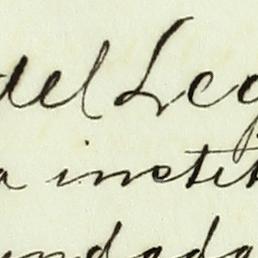 del Leg
a instit
undada